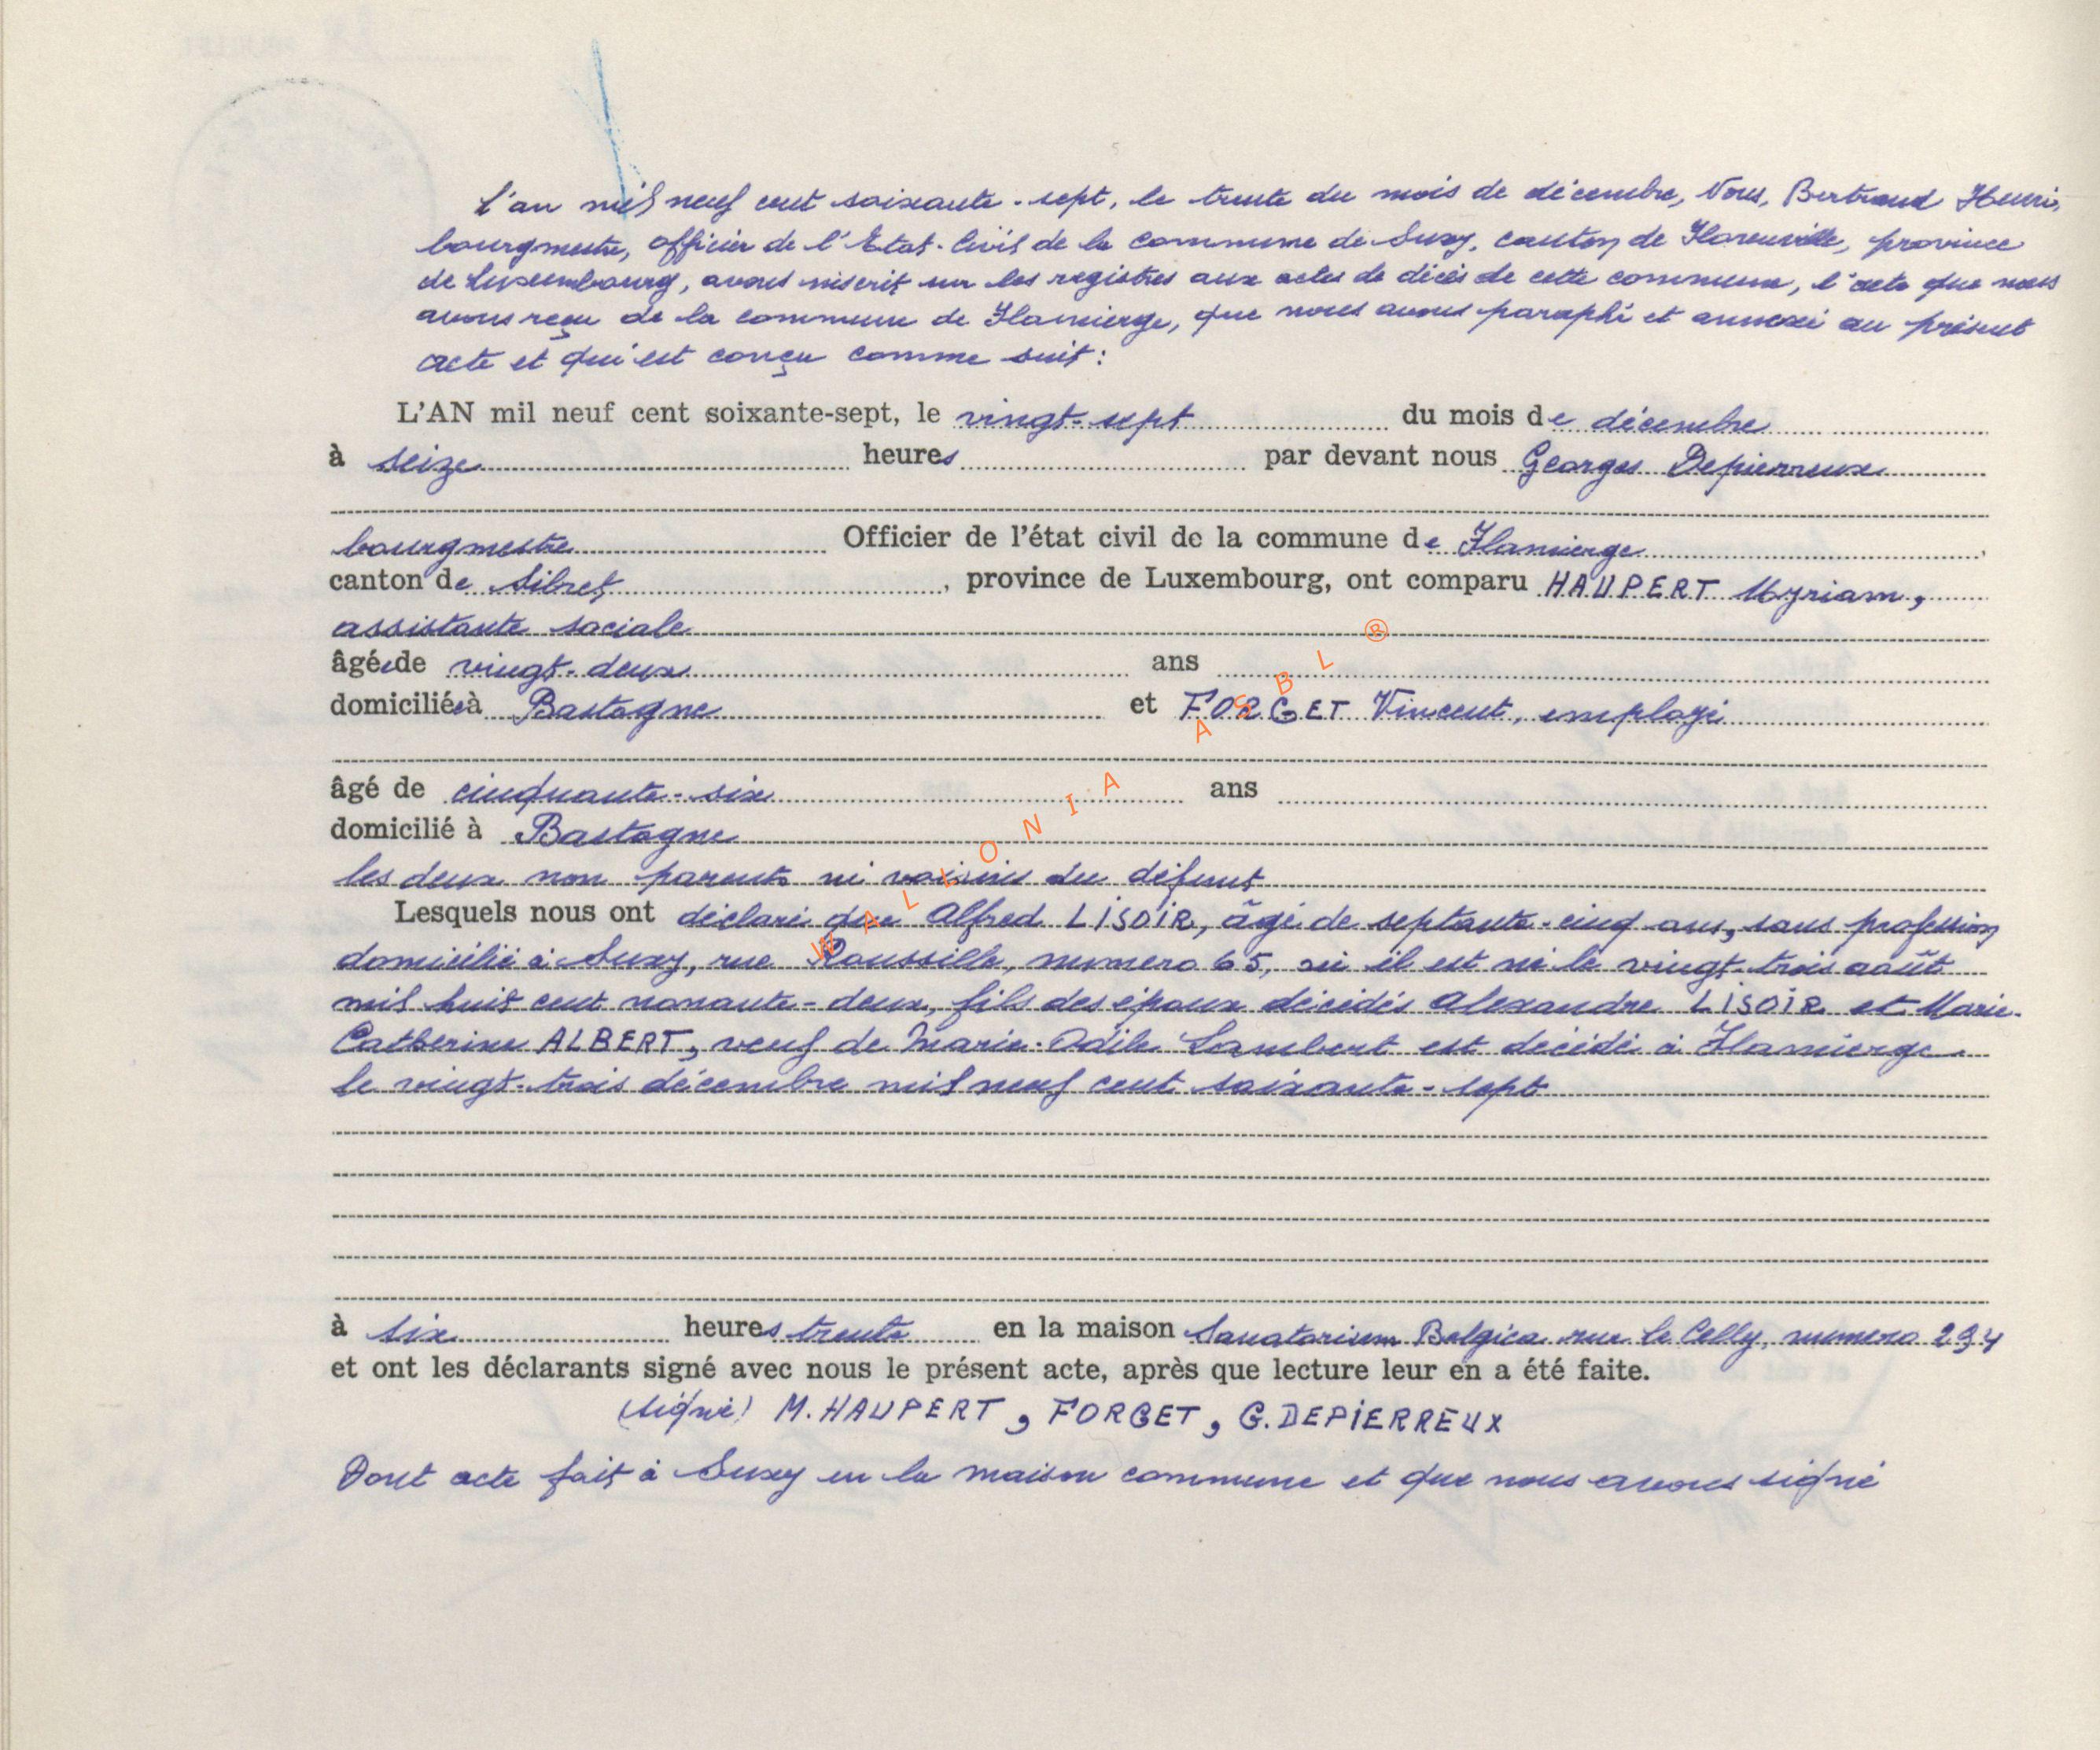 L'an mil neuf cent soixante-sept, le trente du mois de décembre, Nous, Bertrand Henri,
bourgmestre, officier de l'Etat-Civil de la commune de Suxy, canton de Florenville, province
de Luxembourg, avons inscrit sur les registres aux actes de décès de cette commune, l'acte que nous
avons reçu de la commune de Flamierge, que nous avons paraphé et annexé au présent
acte et qui est conçu comme suit :
L'AN mil neuf cent soixante-sept, le vingt-sept du mois de décembre
à seize heures par devant nous Georges Depierreux
bourgmestre Officier de l'état civil de la commune de Flamierge,
canton de Sibret, province de Luxembourg, ont comparu HAUPERT Myriam,
assistante sociale
âgée de vingt-deux ans
domiciliée à Bastogne et FORGET Vincent, employé
âgé de cinquante-six ans
domicilié à Bastogne
les deux non parents ni voisins du défunt
Lesquels nous ont déclaré que Alfred LISOIR, âgé de septante-cinq ans, sans profession
domicilié à Suxy, rue Roussille, numéro 65, où il est né le vingt-trois août
mil huit cent nonante-deux, fils des époux décédés Alexandre LISOIR et Marie-
Catherine ALBERT, veuf de Marie-Odile Lambert est décédé à Flamierge
le vingt-trois décembre mil neuf cent soixante-sept
à six heures trente en la maison Sanatorium Belgica rue le Celly, numéro 294
et ont les déclarants signé avec nous le présent acte, après que lecture leur en a été faite.
(signé) M. HAUPERT, FORGET, G. DEPIERREUX
Dont acte fait à Suxy en la maison commune et que nous avons signé
WALLONIA ASBL ®